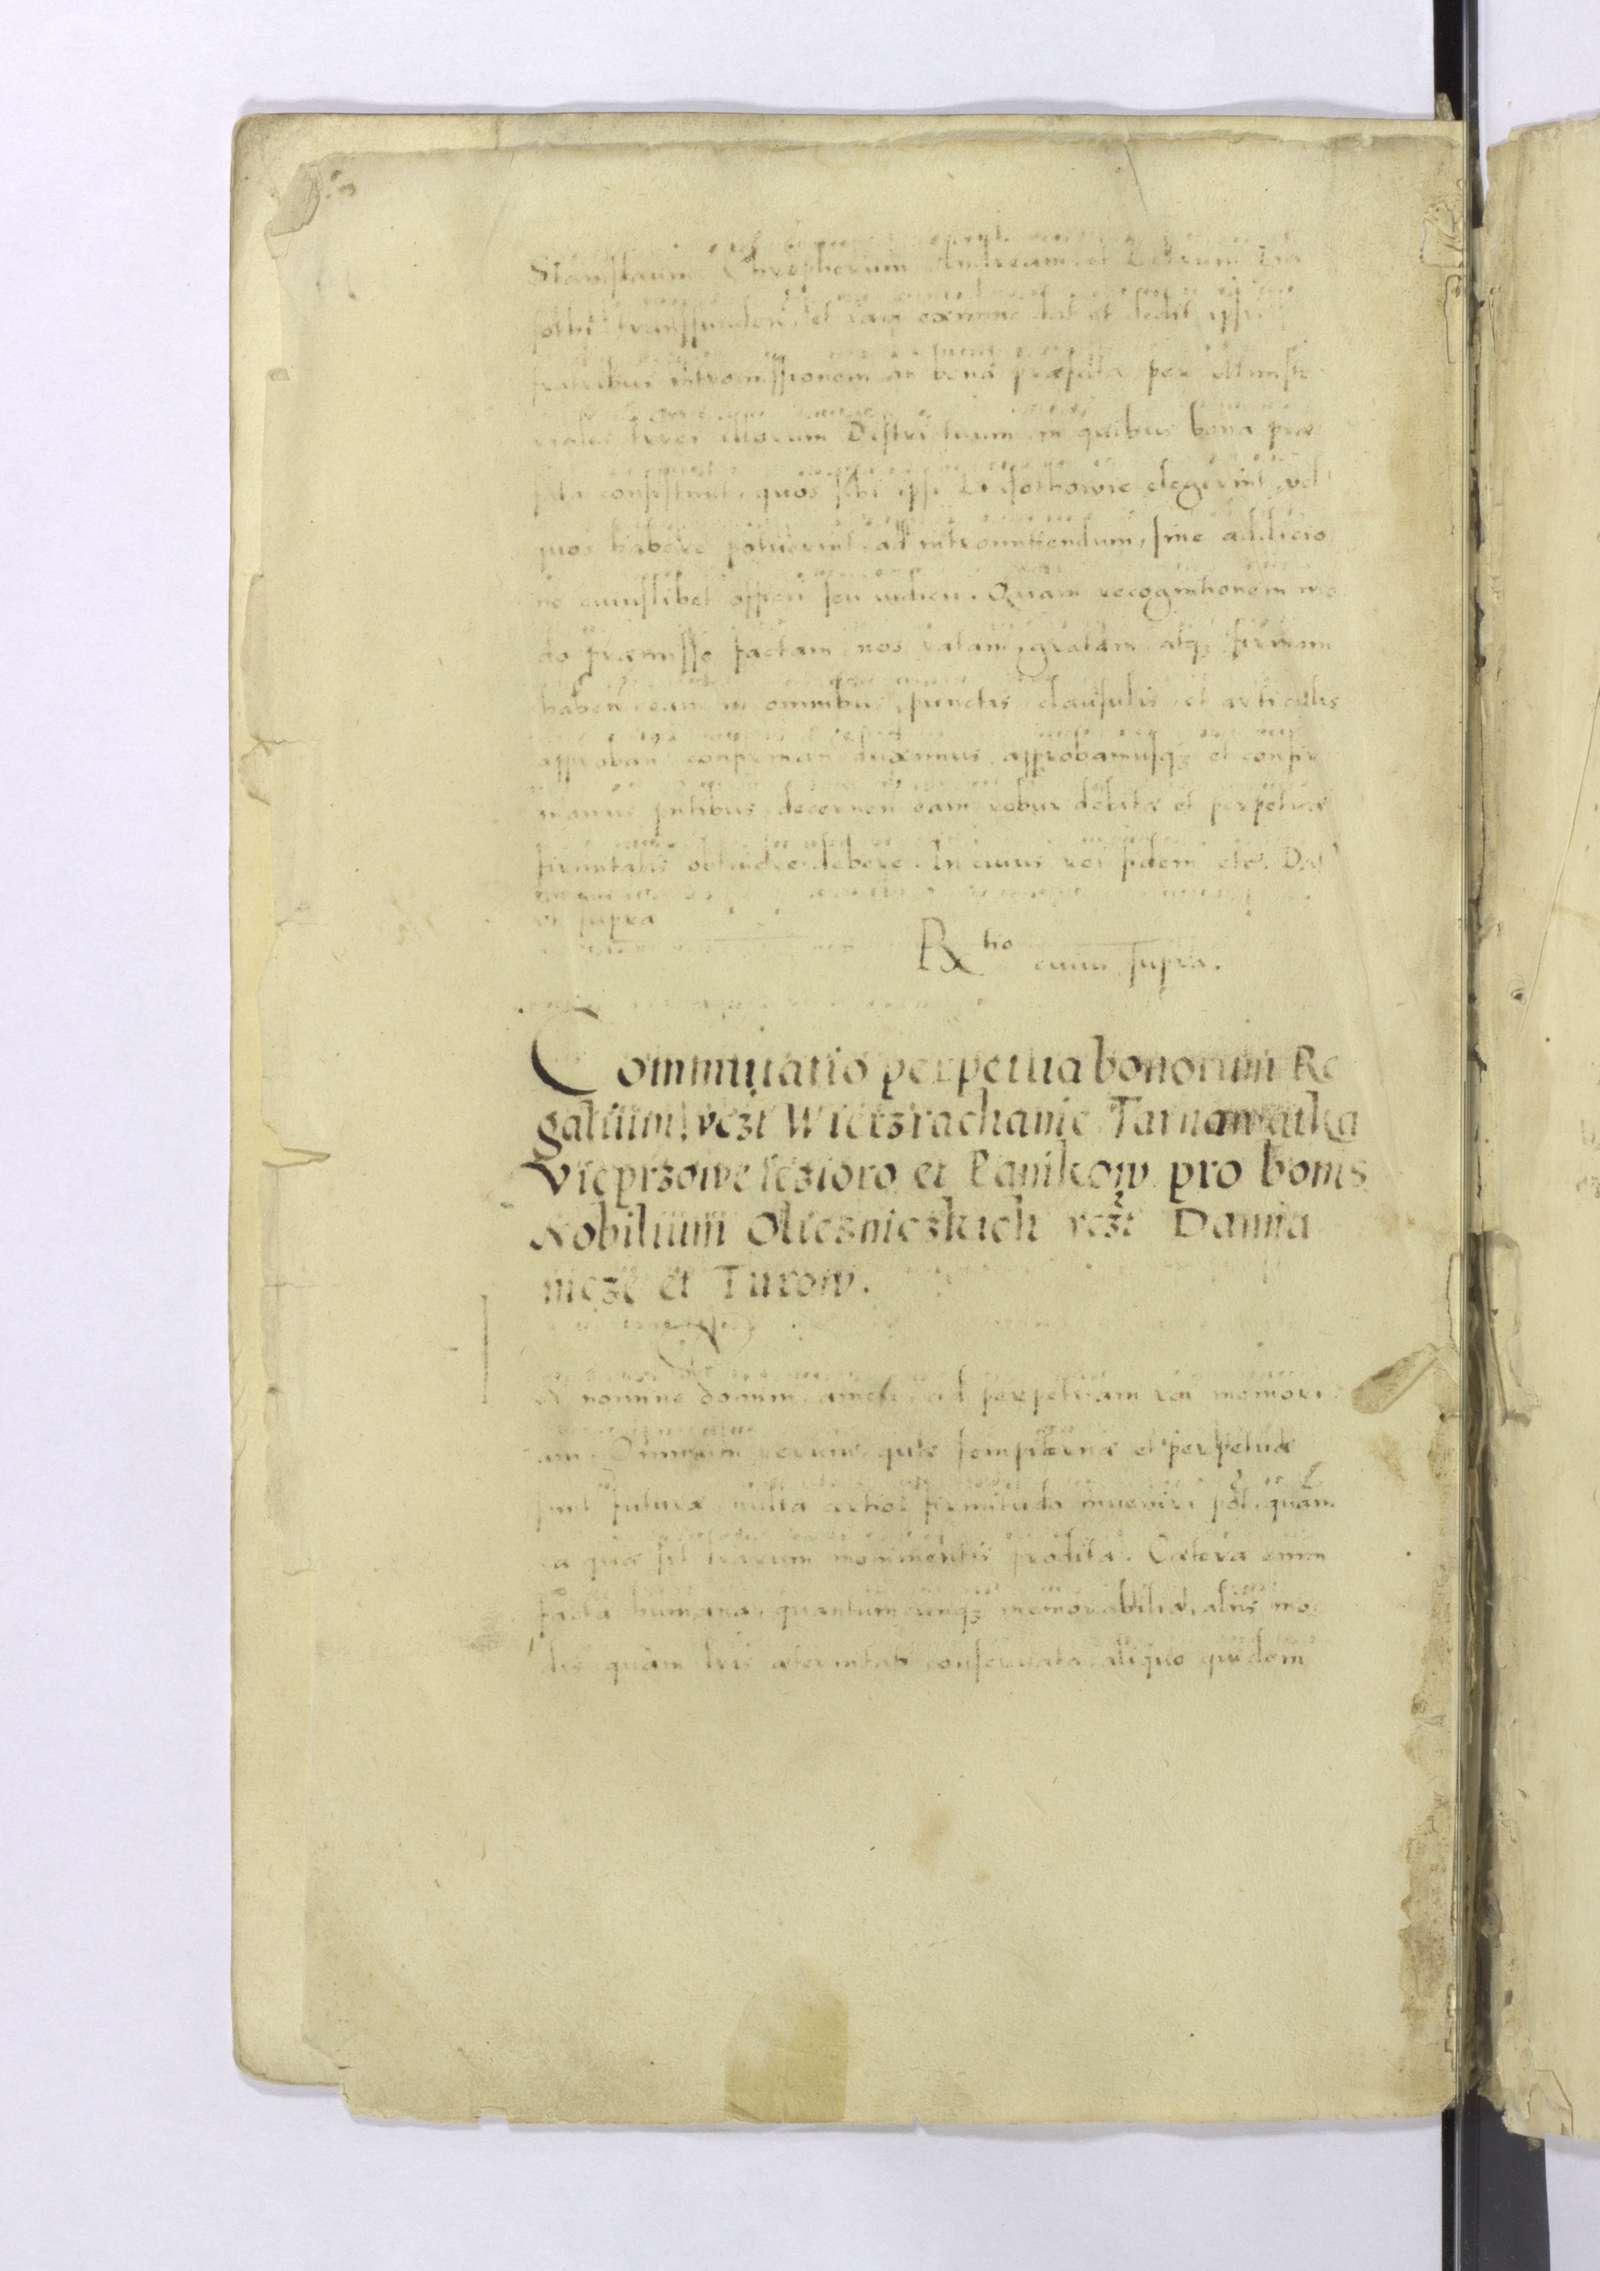 Stanislaum Chrisphorum Andream et Petrum La
sothi transfunden et eaq exnunc dat et dedit ipsis
fratribus intromissionem in bona præfata per Ministe
riales terrs illorum Districtuum in quibus bona præ
fata consistunt, quos sibi ipsi elegerint vel
quos habere potuerint ad intromittendum, sine addicio
ne cuiuslibet officii seu iudicii. Quam recognitionem mo
do præmisso factam nos ratam, gratam atq3 firmam
haben eam in omnibus, punctis, clausulis et articulis
approban confirman duximus, approbamusq3 et confir
mamus pntibus decernen eam robur debitæ et perpetuæ
firmitatis obtinere debere. In cuius rei fidem etc. Dat
ut supra
Rtio cuius supra.
Commutatio perpetua bonorum Re
galium, vczt Wierzrachanie Tarnawatka
Vieprzowe iezioro et Panikow pro bonis
Nobilium Oliesnieskich vczt Damia
nicze et Turow.
nomine domini amen, ad perpetuam rei memori
am. Omnium rerum quæ sempiternæ et perpetuæ
sunt futuræ nulla certior firmitudo inveniri pot, quam
ea quæ sit lrarum monimentis prodita. Cætera enim
facta humana, quantumcunq3 memorabilia, aliis mo
dis quam lris æternitati consecrata, aliquo quidem